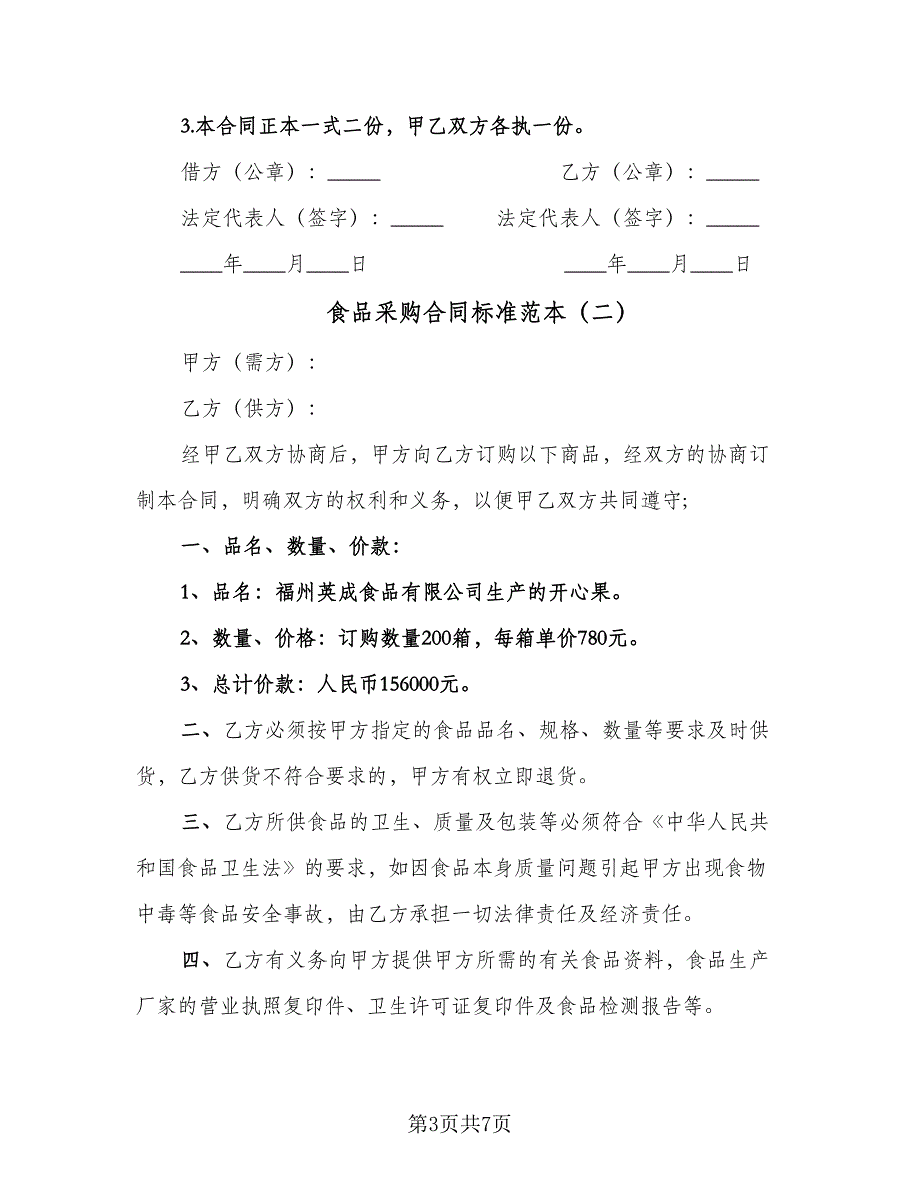 3.本合同正本一式二份，甲乙双方各执一份。
借方（公章）：_____ 乙方（公章）：_____
法定代表人（签字）：_____ 法定代表人（签字）：_____
____年____月____日 ____年____月____日
食品采购合同标准范本（二）
甲方（需方）：
乙方（供方）：
经甲乙双方协商后，甲方向乙方订购以下商品，经双方的协商订
制本合同，明确双方的权利和义务，以便甲乙双方共同遵守;
一、品名、数量、价款：
1、品名：福州英成食品有限公司生产的开心果。
2、数量、价格：订购数量200箱，每箱单价780元。
3、总计价款：人民币156000元。
二、乙方必须按甲方指定的食品品名、规格、数量等要求及时供
货，乙方供货不符合要求的，甲方有权立即退货。
三、乙方所供食品的卫生、质量及包装等必须符合《中华人民共
和国食品卫生法》的要求，如因食品本身质量问题引起甲方出现食物
中毒等食品安全事故，由乙方承担一切法律责任及经济责任。
四、乙方有义务向甲方提供甲方所需的有关食品资料，食品生产
厂家的营业执照复印件、卫生许可证复印件及食品检测报告等。
第3页共7页